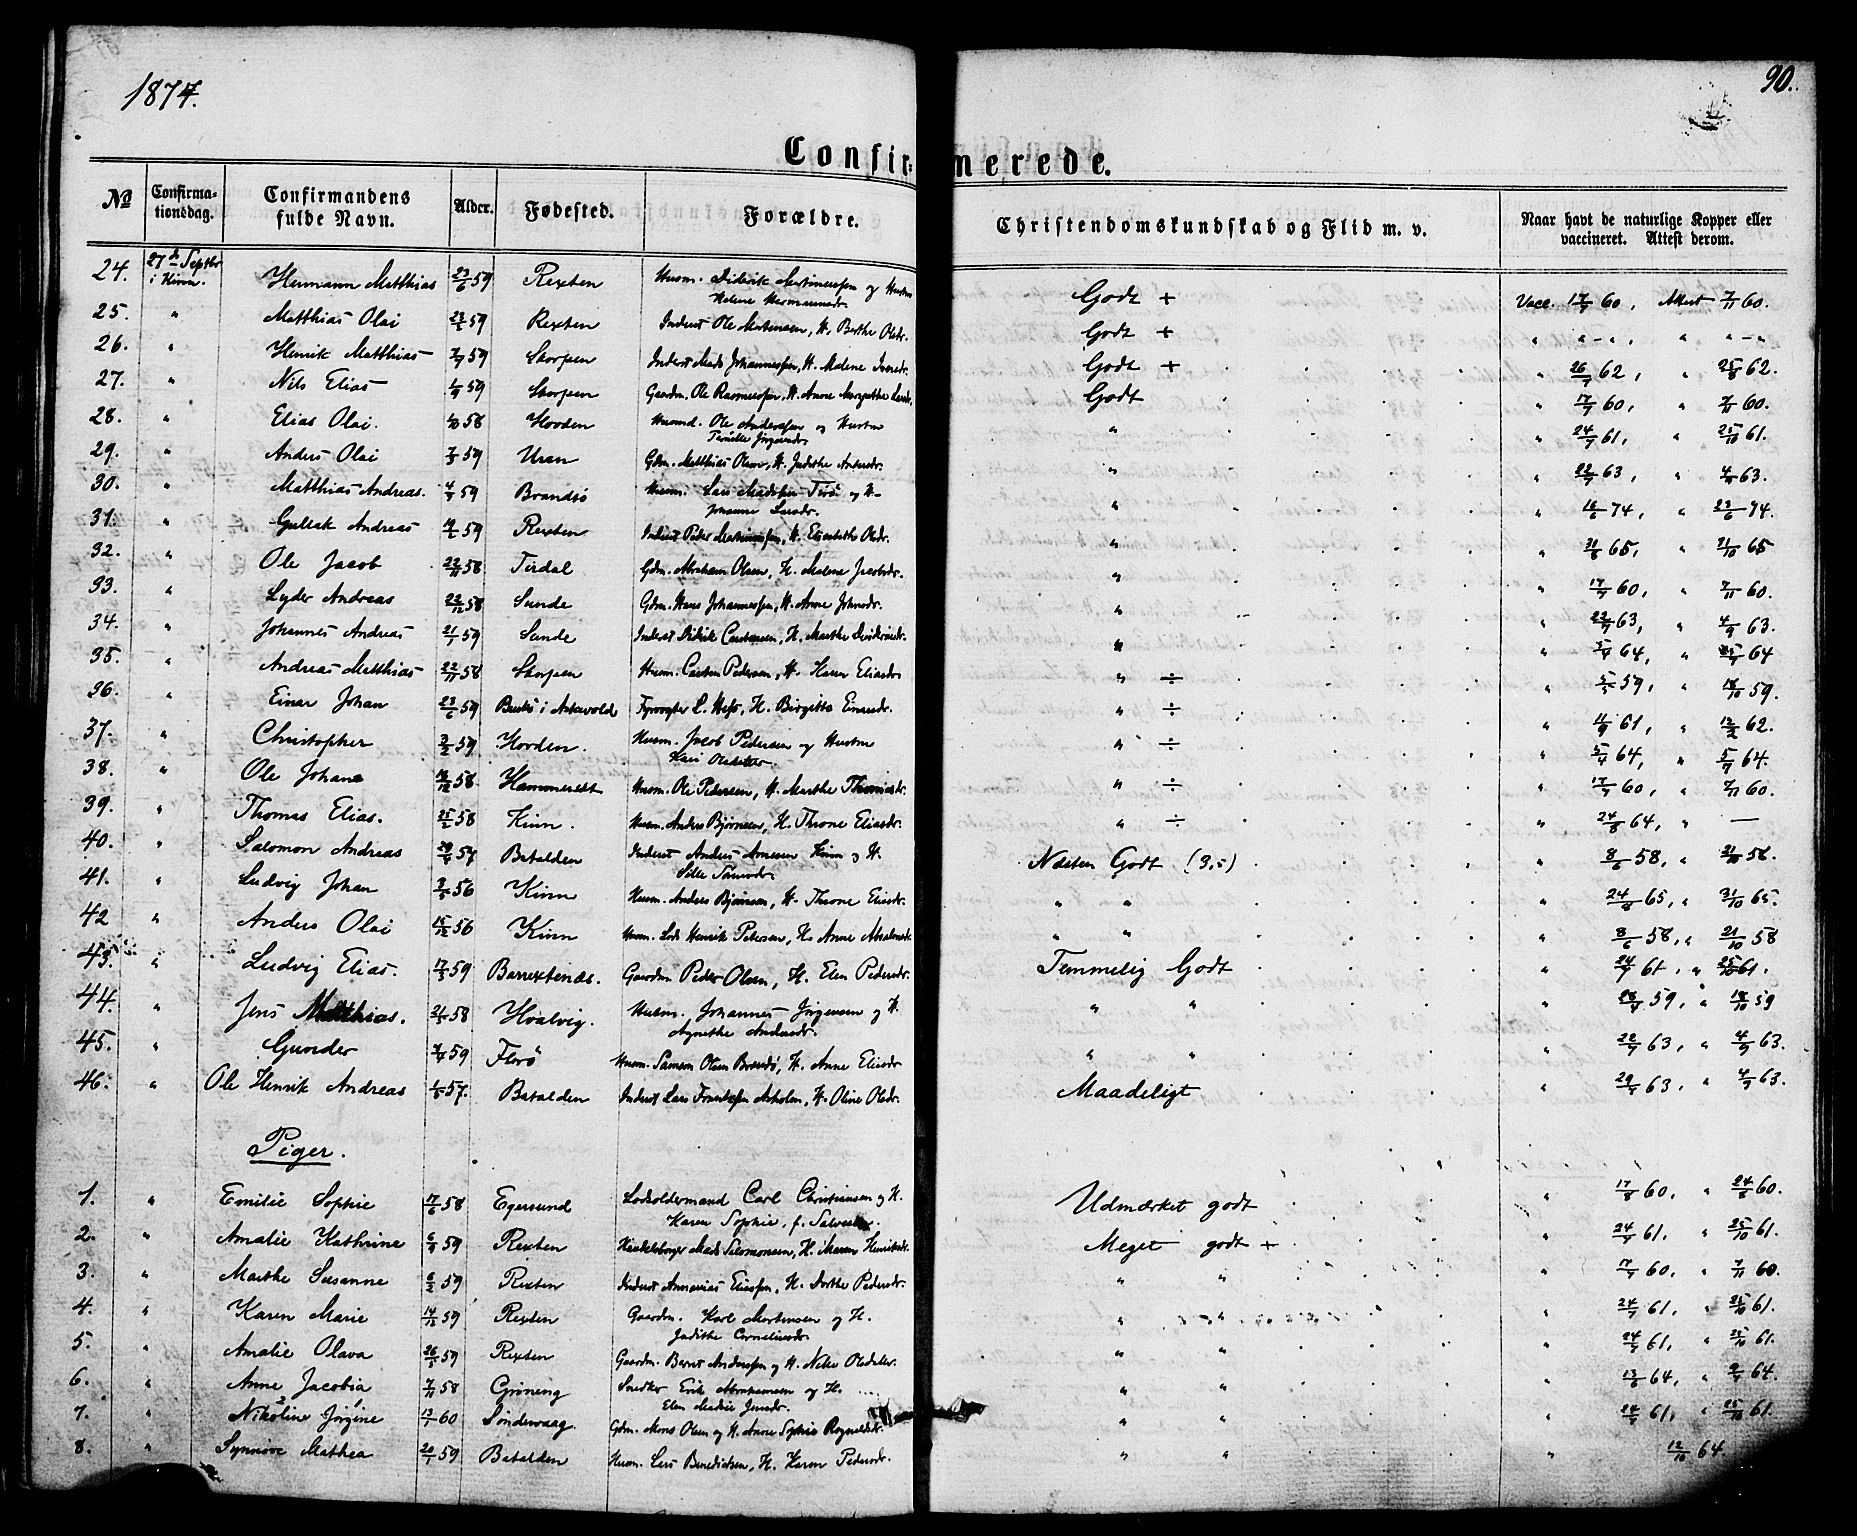 1874.
90.
Confirmerede.
No Confirmationsdag. Confirmandens fulde Navn. Alder. Fødested. Forældre. Christendomskundskab og Flid m. v. Naar havt de naturlige Kopper eller vaccineret. Attest derom.
24. 27de Septbr i Kinn. Hermann Matthias 23/6 59 Rexten Husm. Didrik Mortinessen og Hustru Helene Hermannsdr. Godt + Vacc. 17/7 60, Attest 7/11 60.
25. " Matthias Olai 23/2 59 Rexten Inderst Ole Mortensen, H. Berthe Olsdr. Godt + " " - " , " " - "
26. " Henrik Matthias 7/7 59 Skorpen Inderst Mads Johannessen, H. Malene Iversdr. Godt + " 26/7 62, " 25/8 62.
27. " Nils Elias 1/9 59 Skorpen Gaardm. Ole Rasmussen, H. Anne Margrethe Larsdr. Godt " 17/7 60, " 7/11 60.
28. " Elias Olai. 58 Hovden Husmd. Ole Anderssen og Hustru Jørgensdr. " " 24/7 61, " 25/10 61.
29. " Anders Olai 59 Uren Gdm. Matthias Olsen, H. Judithe Andersdr. " " 22/7 63, " 4/9 63.
30. " Matthias Andreas. 4/7 59 Brandsø Husm. Lars Madsen og H. Johanne Larsdr. " " 16/6 74, " 23/6 74.
31. " Gullak Andreas 59 Rexten Inderst Peder Mortinessen, H. Elisabeth Olsdr. " " 31/8 65, " 31/10 65
32. " Ole Jacob 22/11 58 Tirdal Gdm. Abraham Olsen, H. Malene Jacobsdr. " " 17/7 60, " 7/11 60.
33. " Lyder Andreas 22/12 58 Sunde Gdm. Hans Johannessen, H. Anne Johnsdr. " " 22/7 63, " 4/9 63.
34. " Johannes Andreas 21/1 59 Sunde Inderst Didrik Carstensen, H. Marthe " " 5/4 64, " 64
35. " Andreas Matthias 22/11 58 Skorpen Husm. Carsten Pedersen, H. Karen Eliasdr. " ÷ " 5/5 59, " 18/10 59.
36. " Einar Johan 23/6 59 i Askevold Fyrvogter L. Hess, H. Birgitte Einarsdr. " ÷ " 11/9 61, " 12/2 62.
37. " Christopher 3/2 59 Hovden. Husm. Jacob Pedersen og Hustru Kari Olsdatter. " ÷ " 5/4 64, " 5/7 64.
38. " Ole Johan 18/12 58. Hammersett Husm. Ole Pedersen, H. Marthe Thomasdr. " ÷ " 17/7 60, " 7/11 60.
39. " Thomas Elias. 25/2 58 Kinn. Husm. Anders Bjørnsen, H. Throne Eliasdr. " ÷ " 24/8 64, " —
40. " Salomon Andreas 57 Batalden Inderst Anders Arnesen Kinn og H. Sille " Næsten Godt (3,5) " 8/6 58, " 21/10 58.
41. " Ludvig Johan 56 Kinn Husm. Anders Bjørnsen, H. Throne Eliasdr. " " " 24/8 65, " 31/10 65.
42 " Anders Olai 15/12 56 Kinn Husm. Lods Henrik Petersen, H. Anne Absalonsdr. " " " 8/6 58, " 21/10 58
43. " Ludvig Elias. 17/3 59 Barrextenæs. Gaardm. Peder Olsen, H. Elen Pedersdr. Temmelig Godt " 24/7 61, " 25/10 61.
44. " Jens Matthias. 21/5 58 Hvalvig. Husm. Johannes Jørgensen og H. Agnethe Andersdr. " " " 59, " 18/10 59
45. " Gunder 59 Florø Husm. Samson Olsen Brandsø, H. Anne Eliasdr " " " 22/7 63, " 4/9 63.
46. " Ole Henrik Andreas 57. Batalden Inderst Lars Frantssen Askolm, H. Oline Olsdr. Maadeligt " 29/7 63, " 4/9 63.
Piger.
1. " Emilie Sophie 17/6 58 Egersund Lodsoldermand Carl Christiansen og H. Karen Sophie, f. Salvesen. Udmærket godt " 17/8 60, " 24/8 60.
2. " Amalie Kathrine 6/9 59 Rexten Handelsborger Mads Salomonsen, H. Maren Henriksdr. Meget godt + " 24/7 61, " 25/10 61.
3. " Marthe Susanne 6/2 59 Rexten Inderst Annanias Eliassen, H. Dorthe Pedersdr. " " " 17/7 60, " 7/11 60.
4. " Karen Marie 59 Rexten Gaardm. Karl Mortensen og H. Judithe Corneliusdr. " " " 24/7 61, " 25/10 61.
5. " Amalie Olava 59 Rexten Gaardm. Bernt Anderssen og H. Nille Olsdatter. " " " 24/7 61, " 25/10 61.
6. " Anne Jacobia 7/11 58 Grøning Snedker Erik Abrahamsen og H. Elen Marie Jensdr. " " " 13/6 64, " 64.
7. " Nikoline Jørgine 13/1 60 Søndervaag Gdm. Mons Olsen og H. Anne Sophie Rognaldsdr. " " " 24/7 61, " 25/10 61.
8. " Synnøve Mathea 20/1 59 Batalden Husm. Lars Benedictsen, H. Karen Pedersdr. " " " 12/10 64.